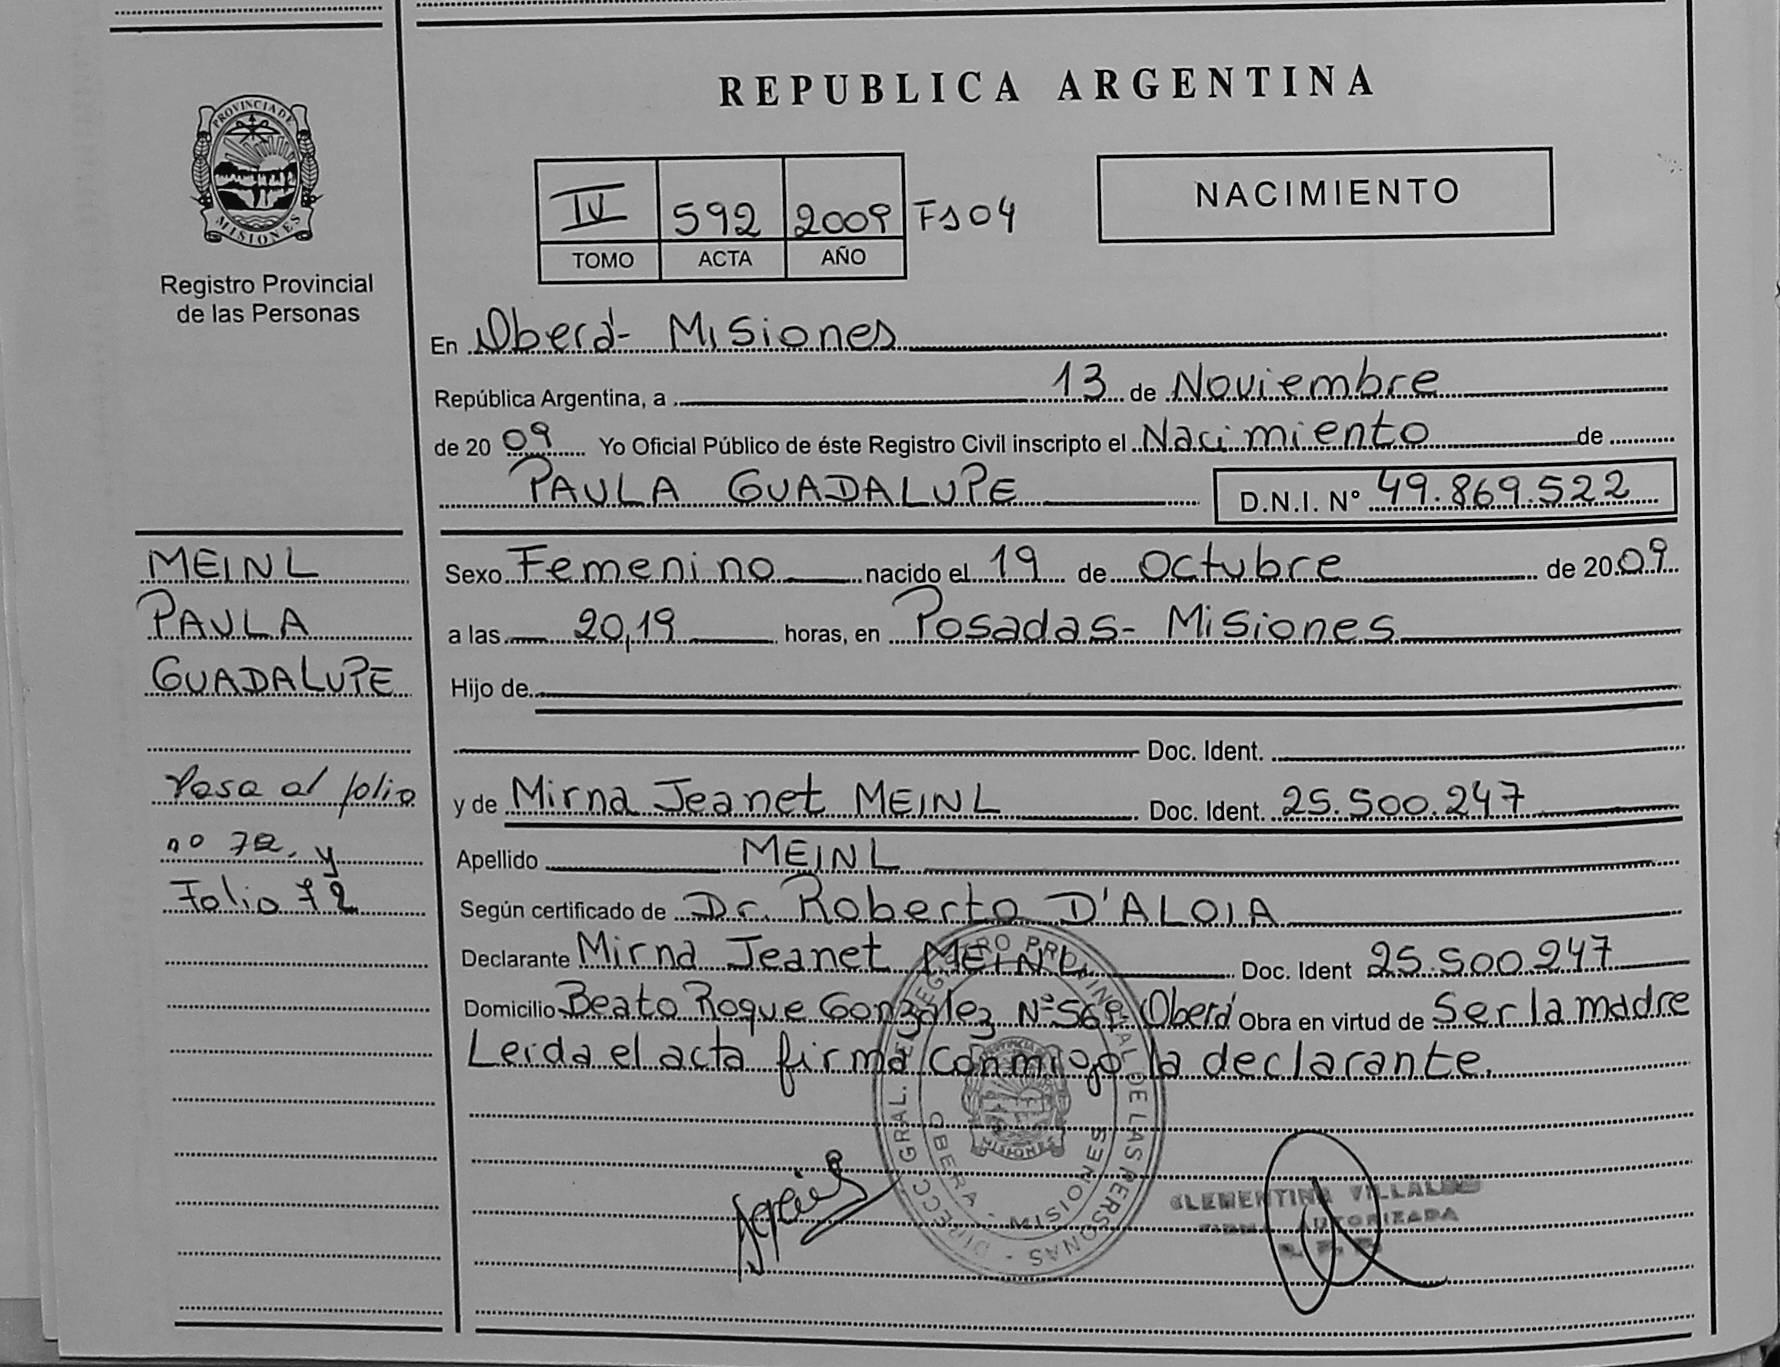 REPUBLICA ARGENTINA
PROVINCIA DE
MISIONES
Registro Provincial
de las Personas
IV 592 2009 Fs 04
TOMO ACTA AÑO
NACIMIENTO
En Oberá- Misiones
República Argentina, a 13 de Noviembre
de 20 09 Yo Oficial Público de éste Registro Civil inscripto el Nacimiento de
PAULA GUADALUPE D.N.I. Nº 49.869.522
MEINL
PAULA
GUADALUPE
Pasa al folio
nº 72, y
Folio 72
Sexo Femenino nacido el 19 de Octubre de 2009
a las 20,19 horas, en Posadas- Misiones
Hijo de
Doc. Ident.
y de Mirna Jeanet MEINL Doc. Ident. 25.500.247
Apellido MEINL
Según certificado de Dr. Roberto D'ALOIA
Declarante Mirna Jeanet MEINL Doc. Ident 25.500.247
Domicilio Beato Roque González Nº Oberá Obra en virtud de Ser la madre
Leída el acta firma conmigo la declarante.
DIRECC. GRAL. DEL REGISTRO PROVINCIAL DE LAS PERSONAS
OBERA - MISIONES
MISIONES
CLEMENTINA VILLALBA
FIRMA AUTORIZADA